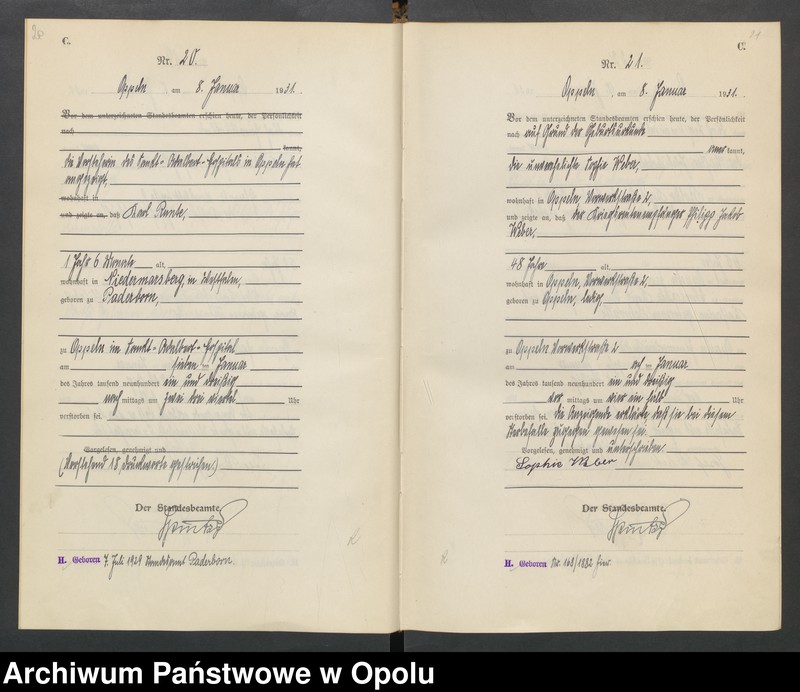 C.
Nr. 20.
Oppeln am 8. Januar 1931.
Vor dem unterzeichneten Standesbeamten erschien heute, der Persönlichkeit
nach
kannt,
die Vorsteherin des Sankt-Adalbert-Hospitals in Oppeln hat
angezeigt,
wohnhaft in
und zeigte an, daß Karl Runte,
1 Jahr 6 Monate alt,
wohnhaft in Niedermarsberg, in Westfalen,
geboren zu Paderborn,
zu Oppeln im Sankt-Adalbert-Hospital
am sieben ten Januar
des Jahres tausend neunhundert ein und dreißig
nach mittags um zwei drei viertel Uhr
verstorben sei.
Vorgelesen, genehmigt und
(Vorstehend 18 Druckworte gestrichen.)
Der Standesbeamte.
H. Geboren 7. Juli 1929 Standesamt Paderborn.
C.
Nr. 21.
Oppeln, am 8. Januar 1931.
Vor dem unterzeichneten Standesbeamten erschien heute, der Persönlichkeit
nach auf Grund der Geburtsurkunde
aner kannt,
die unverehelichte Sophie Weber,
wohnhaft in Oppeln, Vorwerkstraße 2,
und zeigte an, daß der Kriegsrentenempfänger Philipp Jakob
Weber,
48 Jahre alt
wohnhaft in Oppeln, Vorwerkstraße 2,
geboren zu Oppeln, ledig,
zu Oppeln Vorwerkstraße 2
am acht ten Januar
des Jahres tausend neunhundert ein und dreißig
vor mittags um vier ein halb Uhr
verstorben sei. Die Anzeigende erklärte, daß sie bei diesem
Sterbefalle zugegen gewesen sei.
Vorgelesen, genehmigt und unterschrieben
Sophie Weber
Der Standesbeamte.
H. Geboren Nr. 168/1882 hier.
Archiwum Państwowe w Opolu